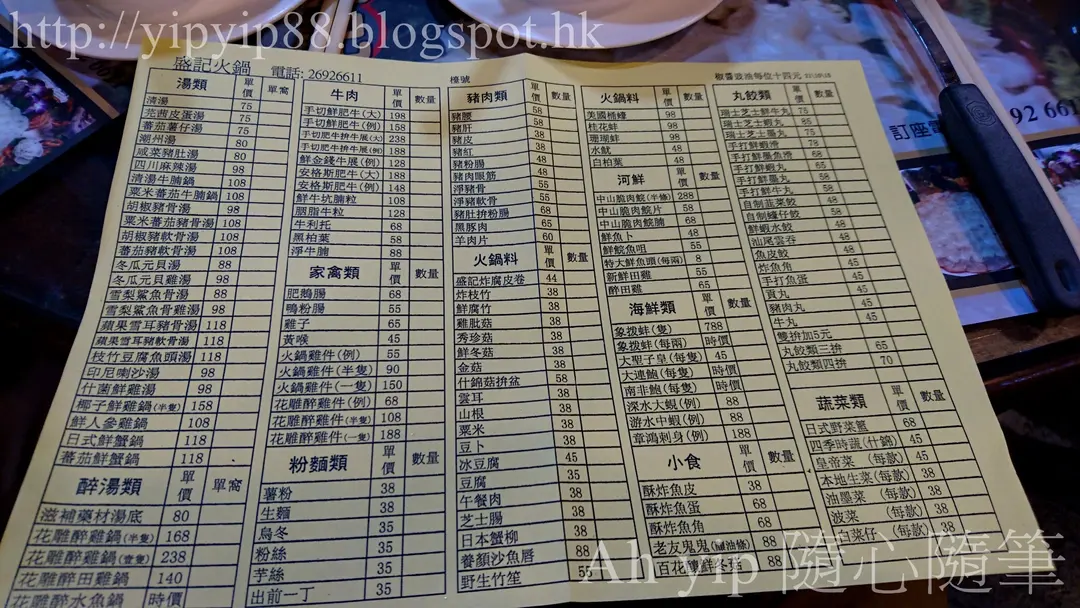 http://yipyip88.blogspot.hk
盛記火鍋 電話: 26926611 檯號 椒醬豉油每位十四元
92 661
訂座電
湯類 單價 單窩
清湯 75
芫茜皮蛋湯 75
蕃茄薯仔湯 75
潮州湯 80
咸菜豬肚湯 80
四川麻辣湯 98
清湯牛腩鍋 108
粟米蕃茄牛腩鍋 108
胡椒豬骨湯 98
粟米蕃茄豬骨湯 108
胡椒豬軟骨湯 108
蕃茄豬軟骨湯 108
冬瓜元貝湯 88
冬瓜元貝雞湯 98
雪梨鯊魚骨湯 88
雪梨鯊魚骨雞湯 98
蘋果雪耳豬骨湯 118
蘋果雪耳豬軟骨湯 118
枝竹豆腐魚頭湯 118
印尼喇沙湯 98
什菌鮮雞湯 98
椰子鮮雞鍋(半隻) 158
鮮人參雞鍋 108
日式鮮蟹鍋 118
蕃茄鮮蟹鍋 118
醉湯類 單價 單窩
滋補藥材湯底 80
花雕醉雞鍋(半隻) 168
花雕醉雞鍋(壹隻) 238
花雕醉田雞鍋 140
花雕醉水魚鍋 時價
牛肉 單價 數量
手切鮮肥牛(大) 198
手切鮮肥牛(例) 158
手切肥牛拚牛展(大) 238
手切肥牛拚牛展(例) 188
鮮金錢牛展(例) 128
安格斯肥牛(大) 188
安格斯肥牛(例) 148
鮮牛坑腩粒 108
胭脂牛粒 128
牛利托 68
黑柏葉 58
淨牛腩 88
家禽類 單價 數量
肥鵝腸 68
鴨粉腸 58
雞子 65
黃喉 45
火鍋雞件(例) 55
火鍋雞件(半隻) 90
火鍋雞件(一隻) 150
花雕醉雞件(例) 68
花雕醉雞件(半隻) 108
花雕醉雞件(一隻) 188
粉麵類 單價 數量
薯粉 38
生麵 38
烏冬 35
粉絲 35
芋絲 35
出前一丁 35
豬肉類 單價 數量
豬腰 58
豬肝 58
豬皮 38
豬紅 38
豬粉腸 48
豬肉眼筋 48
淨豬骨 55
淨豬軟骨 55
豬肚拚粉腸 68
黑豚肉 65
羊肉片 60
火鍋料 單價 數量
盛記炸腐皮卷 44
炸枝竹 38
鮮腐竹 38
雞肶菇 38
秀珍菇 38
鮮冬菇 38
金菇 38
什錦菇拚盆 58
雲耳 38
山根 38
粟米 38
豆卜 38
冰豆腐 45
豆腐 35
午餐肉 38
芝士腸 38
日本蟹柳 38
養顏沙魚唇 88
野生竹笙 55
火鍋料 單價 數量
美國桶蠔 98
桂花蚌 98
珊瑚蚌 98
水魷 48
白柏葉 48
河鮮 單價 數量
中山脆肉鯇(半條) 288
中山脆肉鯇片 58
中山脆肉鯇腩 68
鮮魚卜 48
鮮鯇魚咀 55
特大鮮魚頭(每兩) 8
新鮮田雞 65
醉田雞 55
海鮮類 單價 數量
象拨蚌(隻) 788
象拨蚌(每兩) 時價
大聖子皇(每隻) 45
大連鮑(每隻) 時價
南非鮑(每隻) 時價
深水大蝦(例) 88
游水中蝦(例) 88
章鴻刺身(例) 188
小食 單價 數量
酥炸魚皮 38
酥炸魚蛋 68
酥炸魚角 68
老友鬼鬼(鹹油條) 88
百花釀鮮冬菇 88
丸餃類 單價 數量
瑞士芝士鮮牛丸 75
瑞士芝士蝦丸
瑞士芝士墨丸
手打鮮蝦滑
手打鮮墨魚滑
手打鮮蝦丸
手打鮮墨丸
手打鮮牛丸
自制韮菜餃
自制蠔仔餃
鮮蝦水餃
汕尾雲吞
魚皮餃
炸魚角 45
手打魚蛋 45
貢丸 45
豬肉丸 45
牛丸 45
雙拚加5元
丸餃類三拚 65
丸餃類四拚 70
蔬菜類 單價 數量
日式野菜籃 68
四季時蔬(什錦) 45
皇帝菜 (每款) 45
本地生菜(每款) 38
油墨菜 (每款) 38
菠菜 (每款) 38
白菜仔 (每款) 38
Ah yip 隨心隨筆